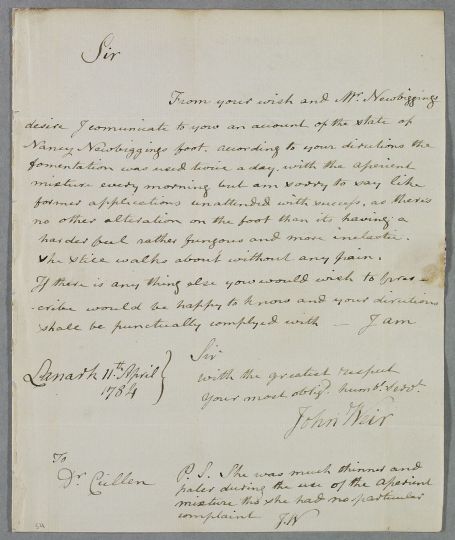 Sir
From your wish and Mr. Newbiggings
desire I comunicate to you an account of the state of
Nancy Newbiggings foot, according to your directions the
fomentation was used twice a day, with the aperient
mixture every morning but am sorry to say like
former applications unattended with success, as there's
no other alteration on the foot than its having a
harder feel rather fungous and more inelastic.
she still walks about without any pain.
If there is any thing else you would wish to pres-
cribe would be happy to know and your directions
shall be punctually complyed with — I am
Sir
Lanark 11th. April
1784
with the greatest respect
your most oblig'd. humb'l. servt.
John Weir
To
Dr. Cullen
P.S. She was much thinner and
paler during the use of the aperient
mixture tho she had no particular
complaint J.W